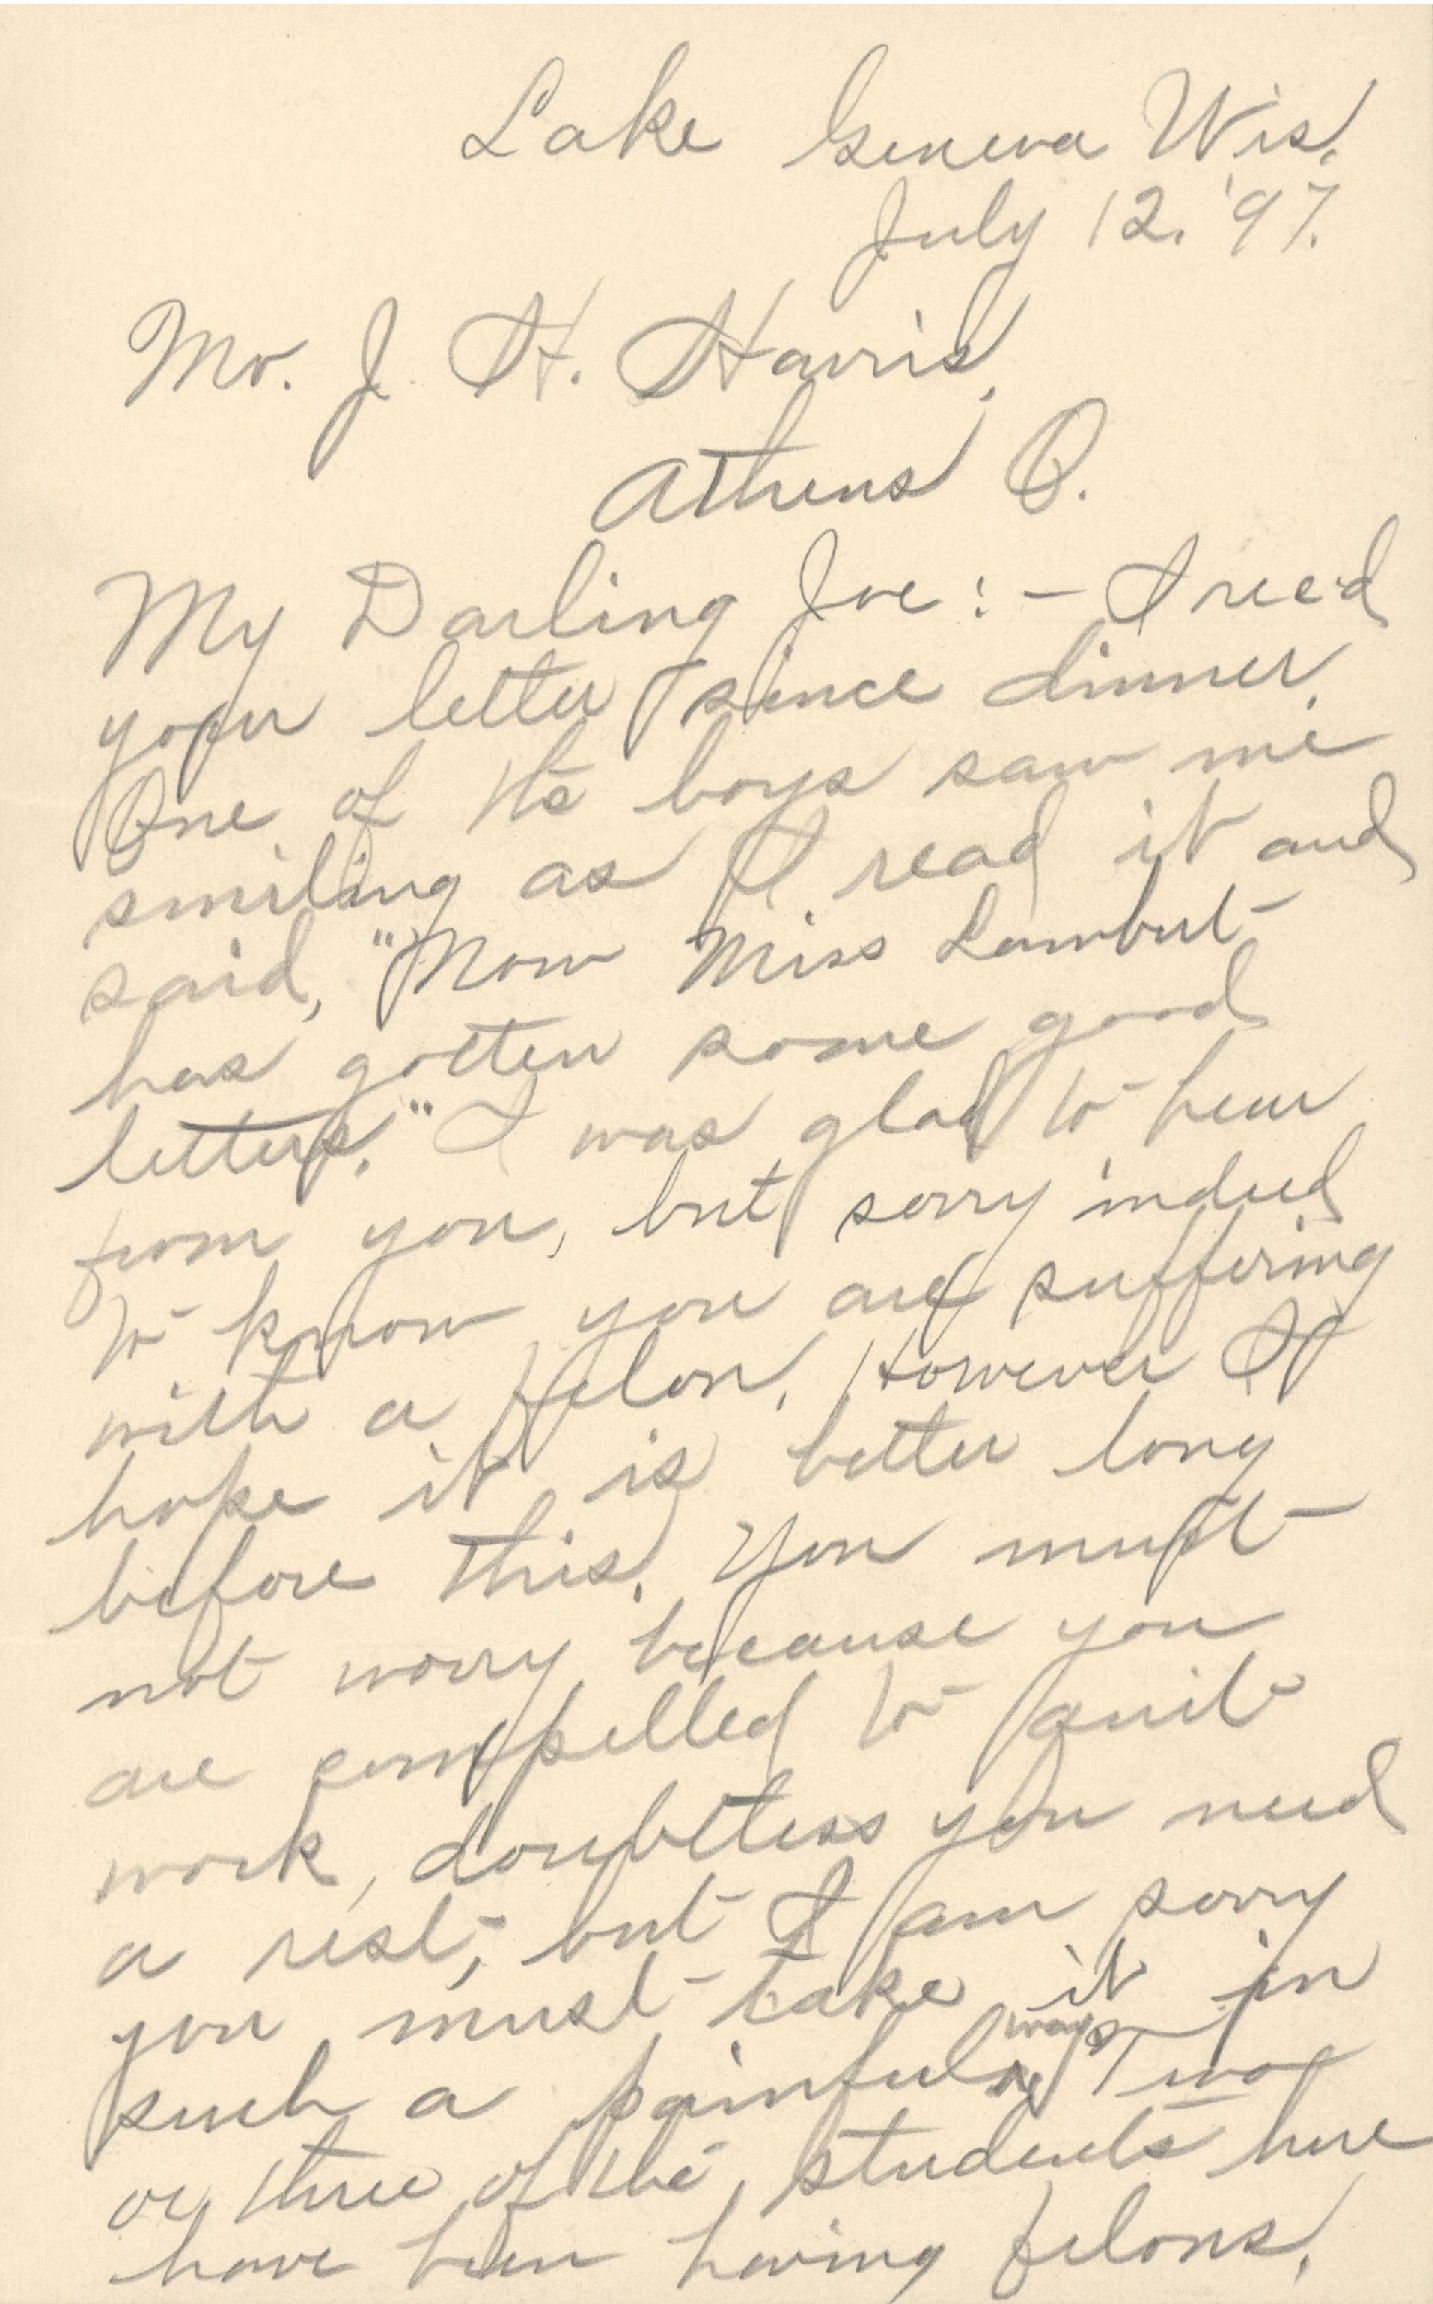 Lake Geneva Wis.
July 12. '97.
Mr. J. H. Harris,
Athens O.
My Darling Joe: - I rec'd
your letter since dinner.
One of the boys saw me
smiling as I read it and
said, "Now Miss Lambert
has gotten some good
letters." I was glad to hear
from you, but sorry indeed
to know you are suffering
with a felon. However I
hope it is better long
before this. You must
not worry because you
are compelled to quit
work, doubtless you need
a rest, but I am sorry
you must take it in
such a painful way. Two
or three of the students here
have been having felons.